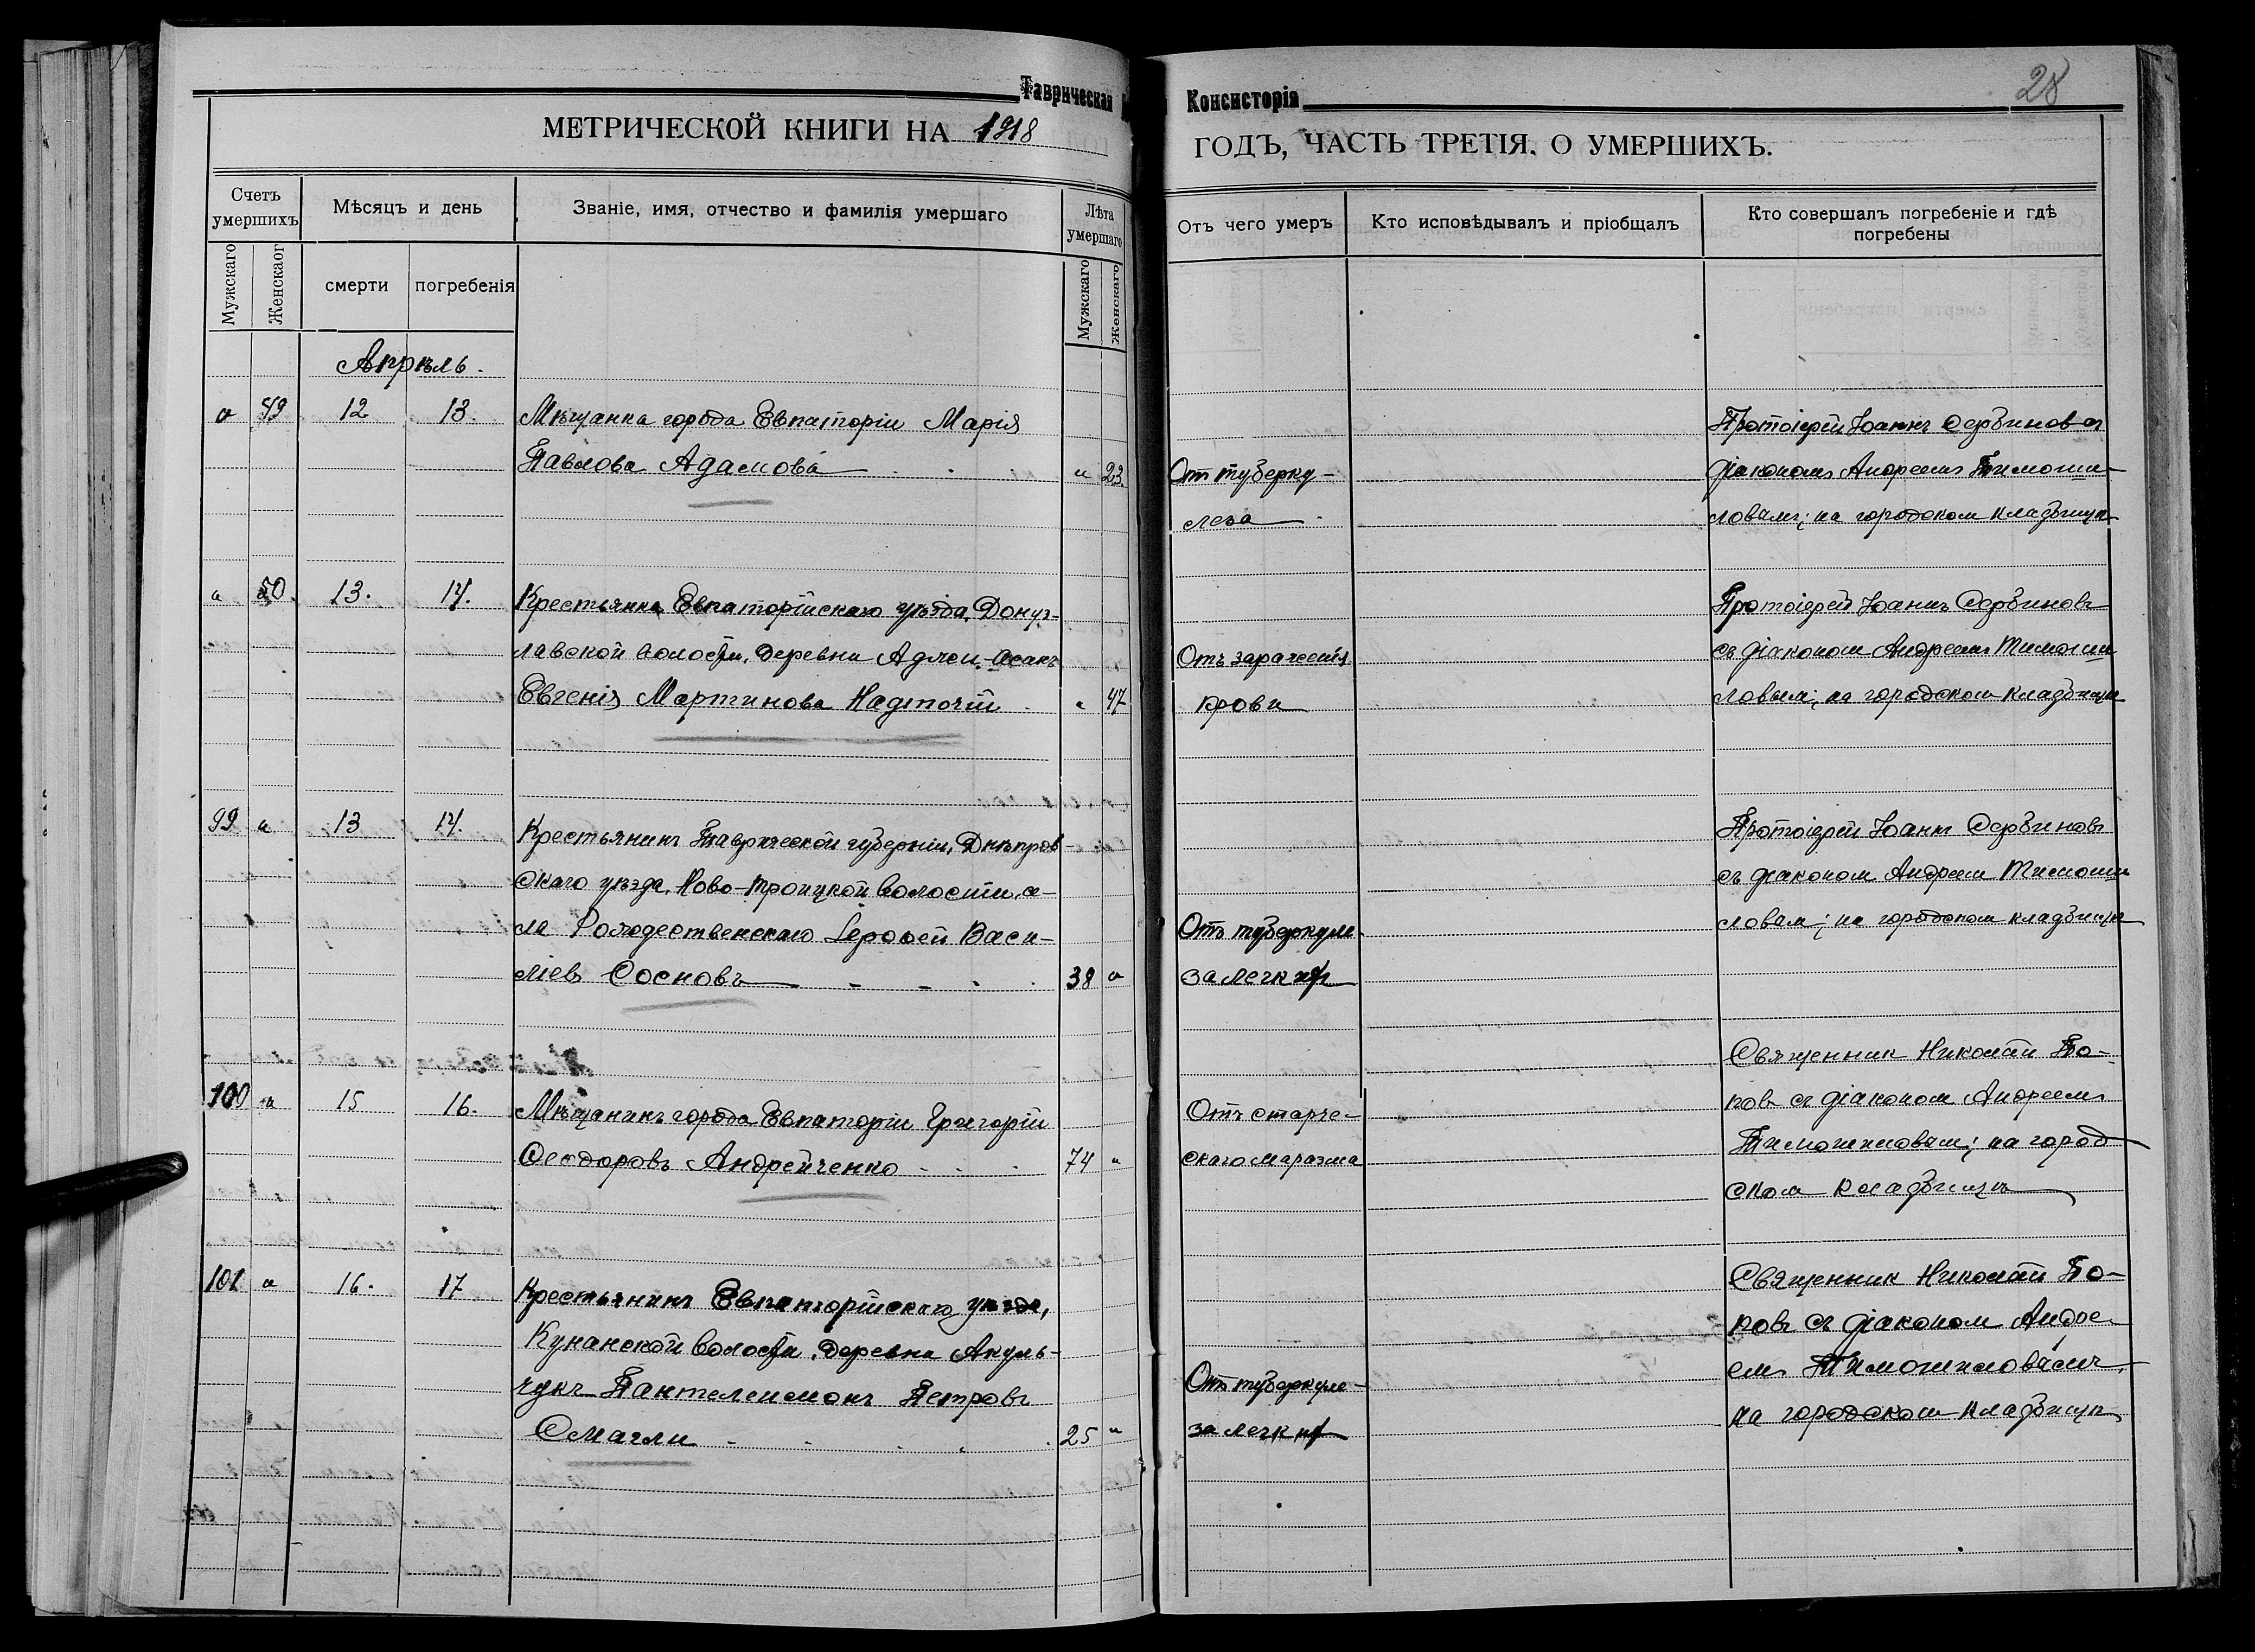 Таврическая
Консисторія
28
МЕТРИЧЕСКОЙ КНИГИ НА 1918
ГОДЪ, ЧАСТЬ ТРЕТІЯ, О УМЕРШИХЪ.
Счетъ умершихъ
Мѣсяцъ и день
Званіе, имя, отчество и фамилія умершаго
Лѣта умершаго
Отъ чего умеръ
Кто исповѣдывалъ и пріобщалъ
Кто совершалъ погребеніе и гдѣ погребены
Мужскаго
Женскаог
смерти
погребенія
Мужскаго
Женскаго
Апрѣль.
" 49 12 13. Мѣщанка города Евпаторіи Марія
Павлова Адамова " 23.
От туберку-
леза
Протоіерей Іоаннъ Сербиновъ съ
діакономъ Андреемъ Тимоши-
ловымъ; на городском кладбищѣ
" 50. 13. 14. Крестьянка Евпаторійскаго уѣзда, Донуз-
лавской волости, деревни Аджи-Асанъ
Евгенія Мартинова Надточій " 47
Отъ зараженія
крови
Протоіерей Іоаннъ Сербиновъ
съ діаконом Андреемъ Тимоши
ловым; на городском кладбищѣ
99 " 13 14. Крестьянинъ Таврической губерніи, Днѣпров-
скаго уѣзда, Ново-Троицкой волости, се-
ла Рождественскаго Іерофей Васи-
ліевъ Сосновъ 38 "
Отъ туберкуле-
за легкихъ
Протоіерей Іоаннъ Сербиновъ
съ діаконом Андреем Тимоши
ловым; на городском кладбищѣ
100 " 15 16. Мѣщанинъ города Евпаторіи Григорій
Феодоровъ Андрейченко 74 "
Отъ старче-
скаго маразма
Священник Николай По-
повъ съ діаконом Андреемъ
Тимошиловым; на город
ском кладбищѣ
101 " 16. 17 Крестьянинъ Евпаторійскаго уѣзда,
Кунанской волости, деревни Акуль-
чукъ Пантелеимонъ Петровъ
Смагли 25 "
От туберкуле-
за легкихъ
Священник Николай По-
повъ съ діаконом Андре-
емъ Тимошиловымъ,
на городском кладбищѣ